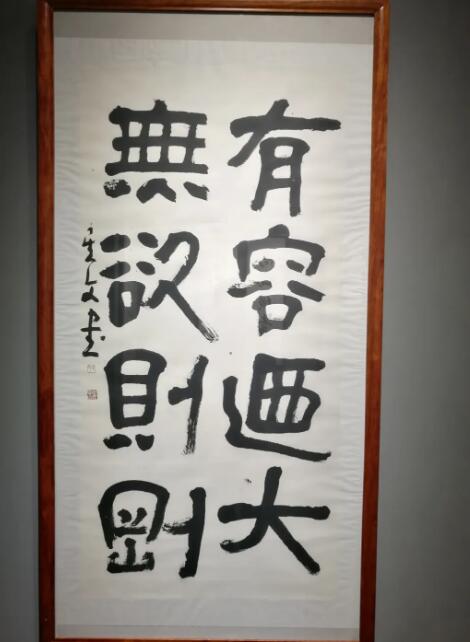 有容迺大
無欲則剛